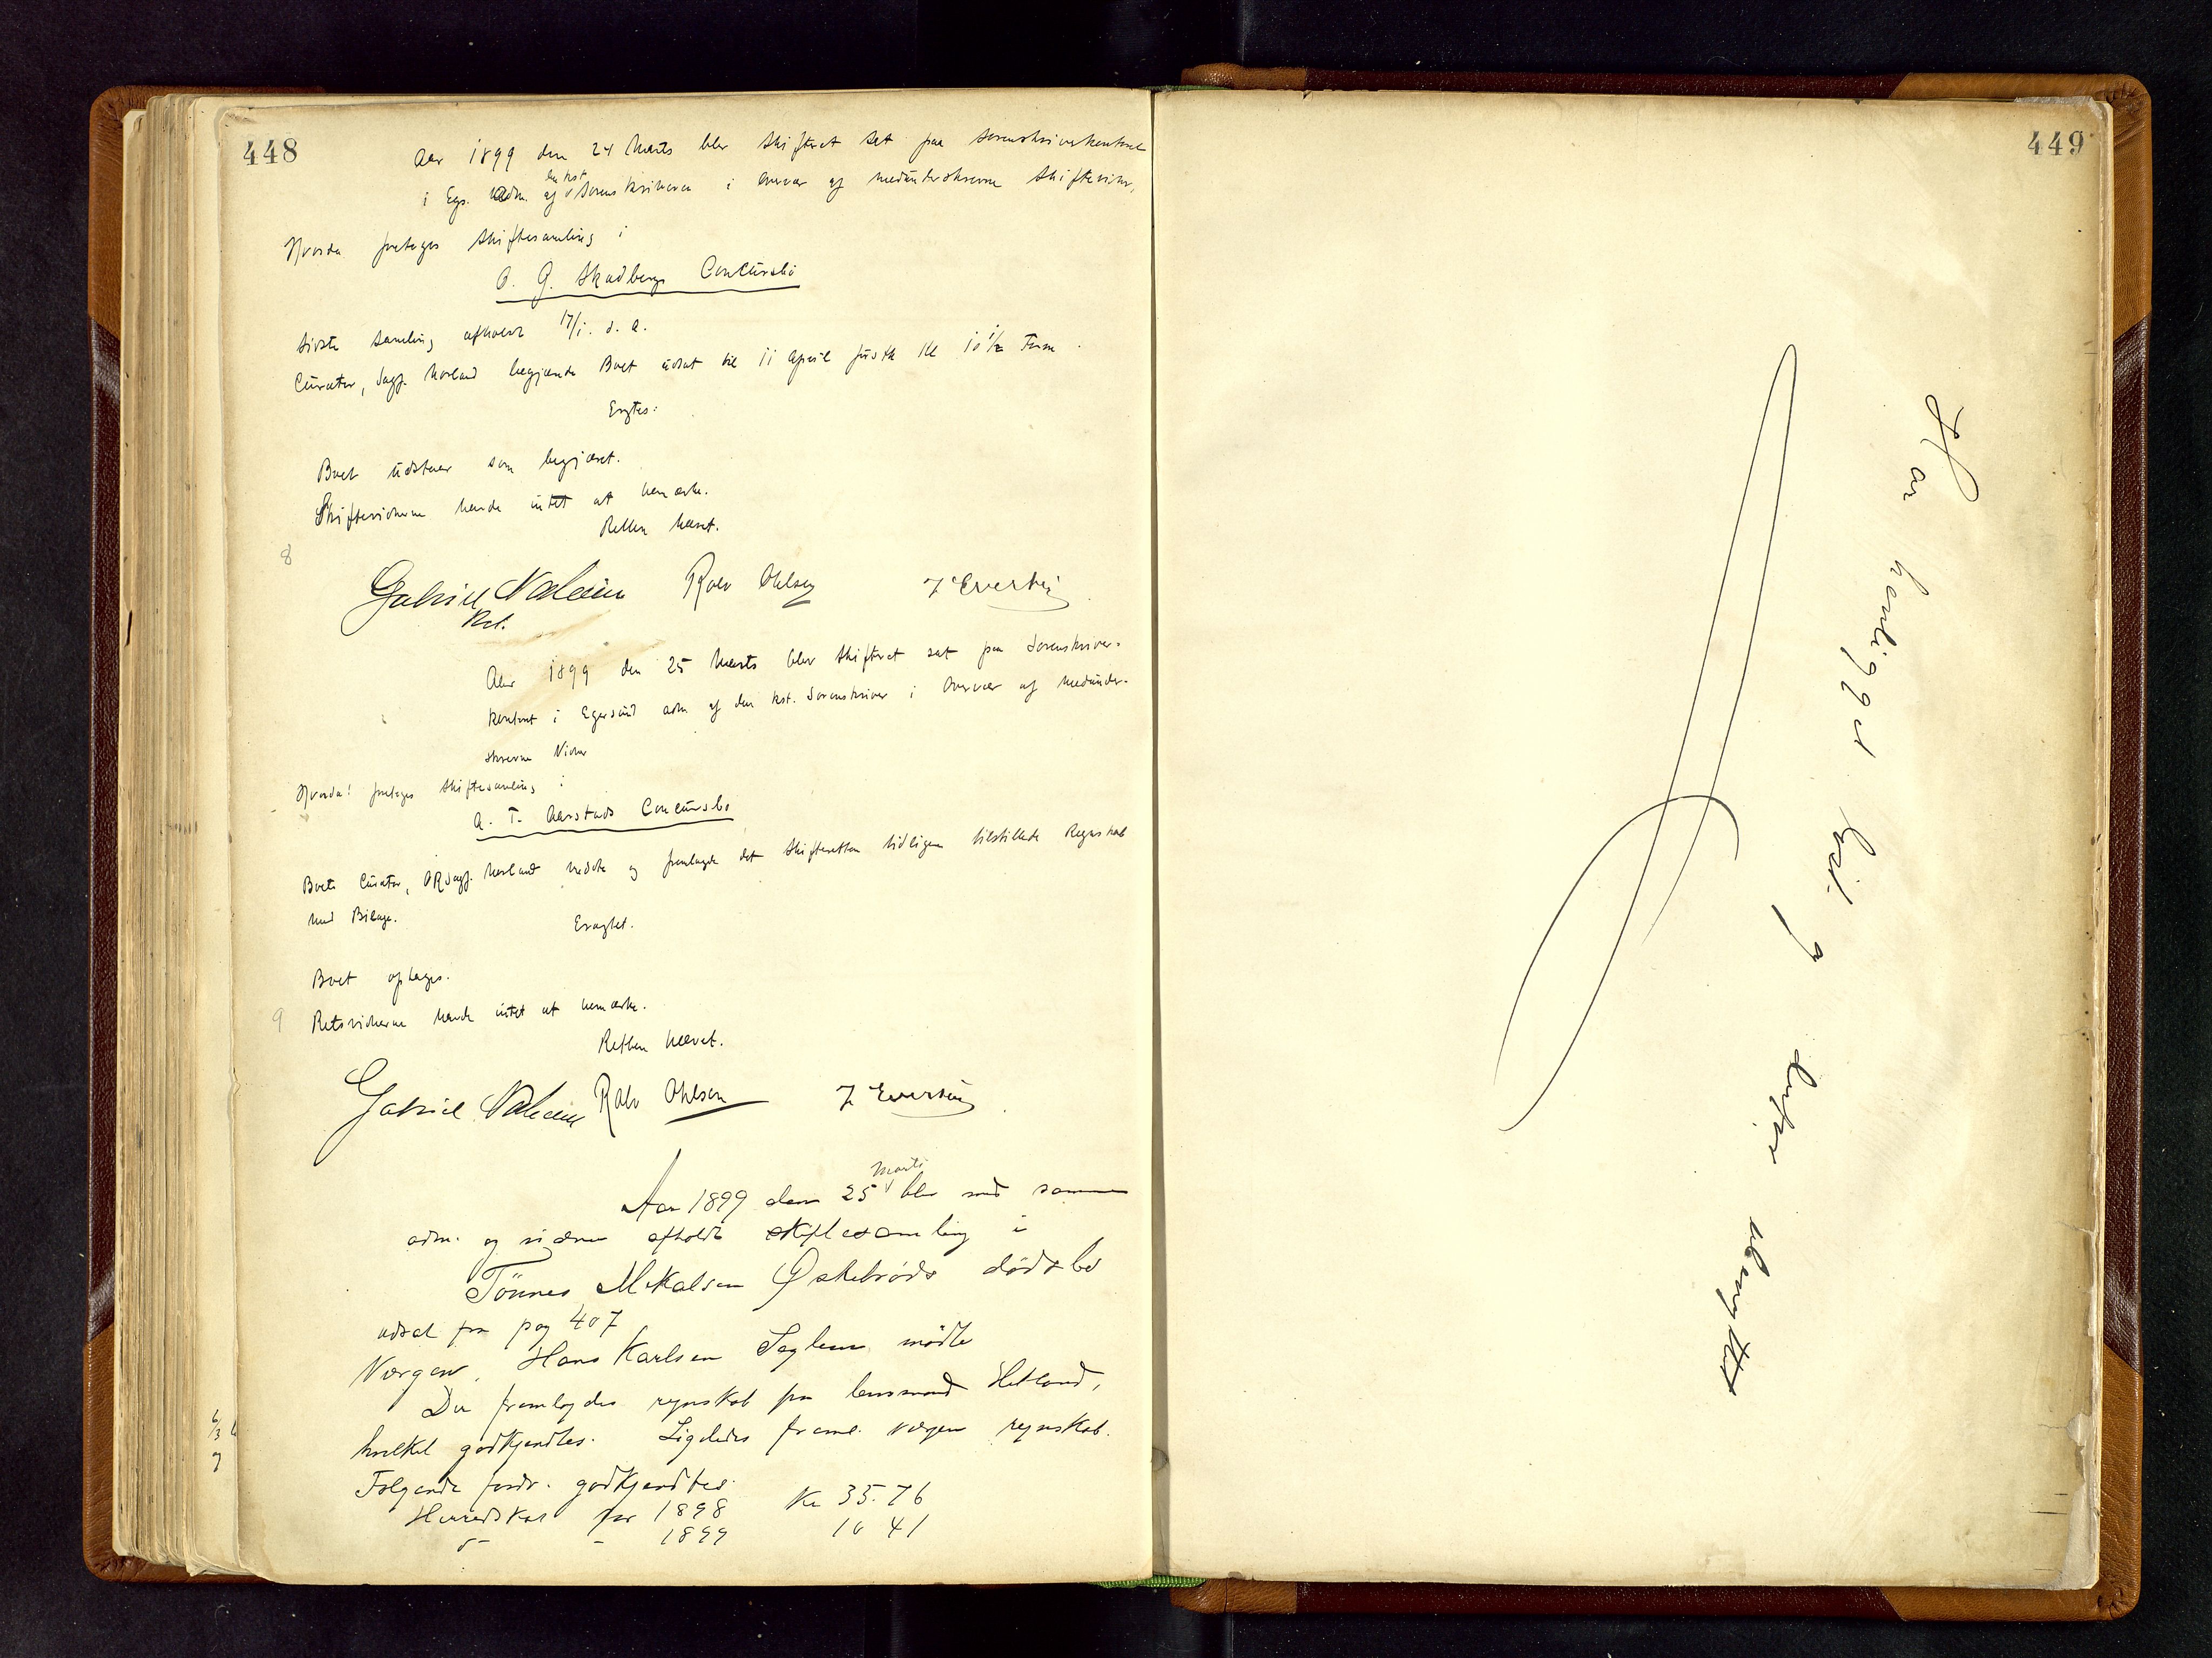 448
Aar 1899 den 24 Marts blev Skifteret sat paa Sorenskriverkontoret
i Egs. adm. af den kst Sorenskriveren i Overvær af medunderskrevne Skiftevidner,
Hvorda foretoges Skiftesamling i
O. G. Skadbergs Concursbo
Sidste Samling afholdt 17/1. d. A.
Curator, Sagf. Norland begjærede Boet udsat til 11 April førstk Kl 10 1/2 Form.
Eragtes:
Boet udstaar som begjæret.
Skiftevidnerne havde intet at bemærke.
Retten hævet.
8
Gabriel Rolv Ohlsen
Kst.
Aar 1899 den 25 Marts blev Skifteret sat paa Sorenskriver-
kontoret i Egersund adm af den kst. Sorenskriver i Overvær af medunder-
skrevne Vidner
Hvorda! foretoges Skiftesamling i
A. T. Aarstads Concursbo
Boets Curator, ORsagf. Norland mødte og fremlagde det Skifteretten tidligere tilstillede Regnskab
med Bilage.
Eragtet.
Boet optages.
9
Retsvidnerne havde intet at bemærke.
Retten hævet.
Gabriel Rolv Ohlsen
Aar 1899 den 25 Marts blev med samme
adm. og vidner afholdt skiftesamling i
Tönnes Mikalsen Øskebröds dödsbo
udsat fra pag 407
Værgen, Hans Karlsen mödte
Der fremlagdes regnskab fra lensmand Hetland,
hvilket godkjendtes. Ligeledes freml. værgen regnskab.
Følgende fordr. godkjendtes.
Herredskat for 1898 Kr 35.76
d- - 1899 10 41
6/3
og
449
Har henligget og